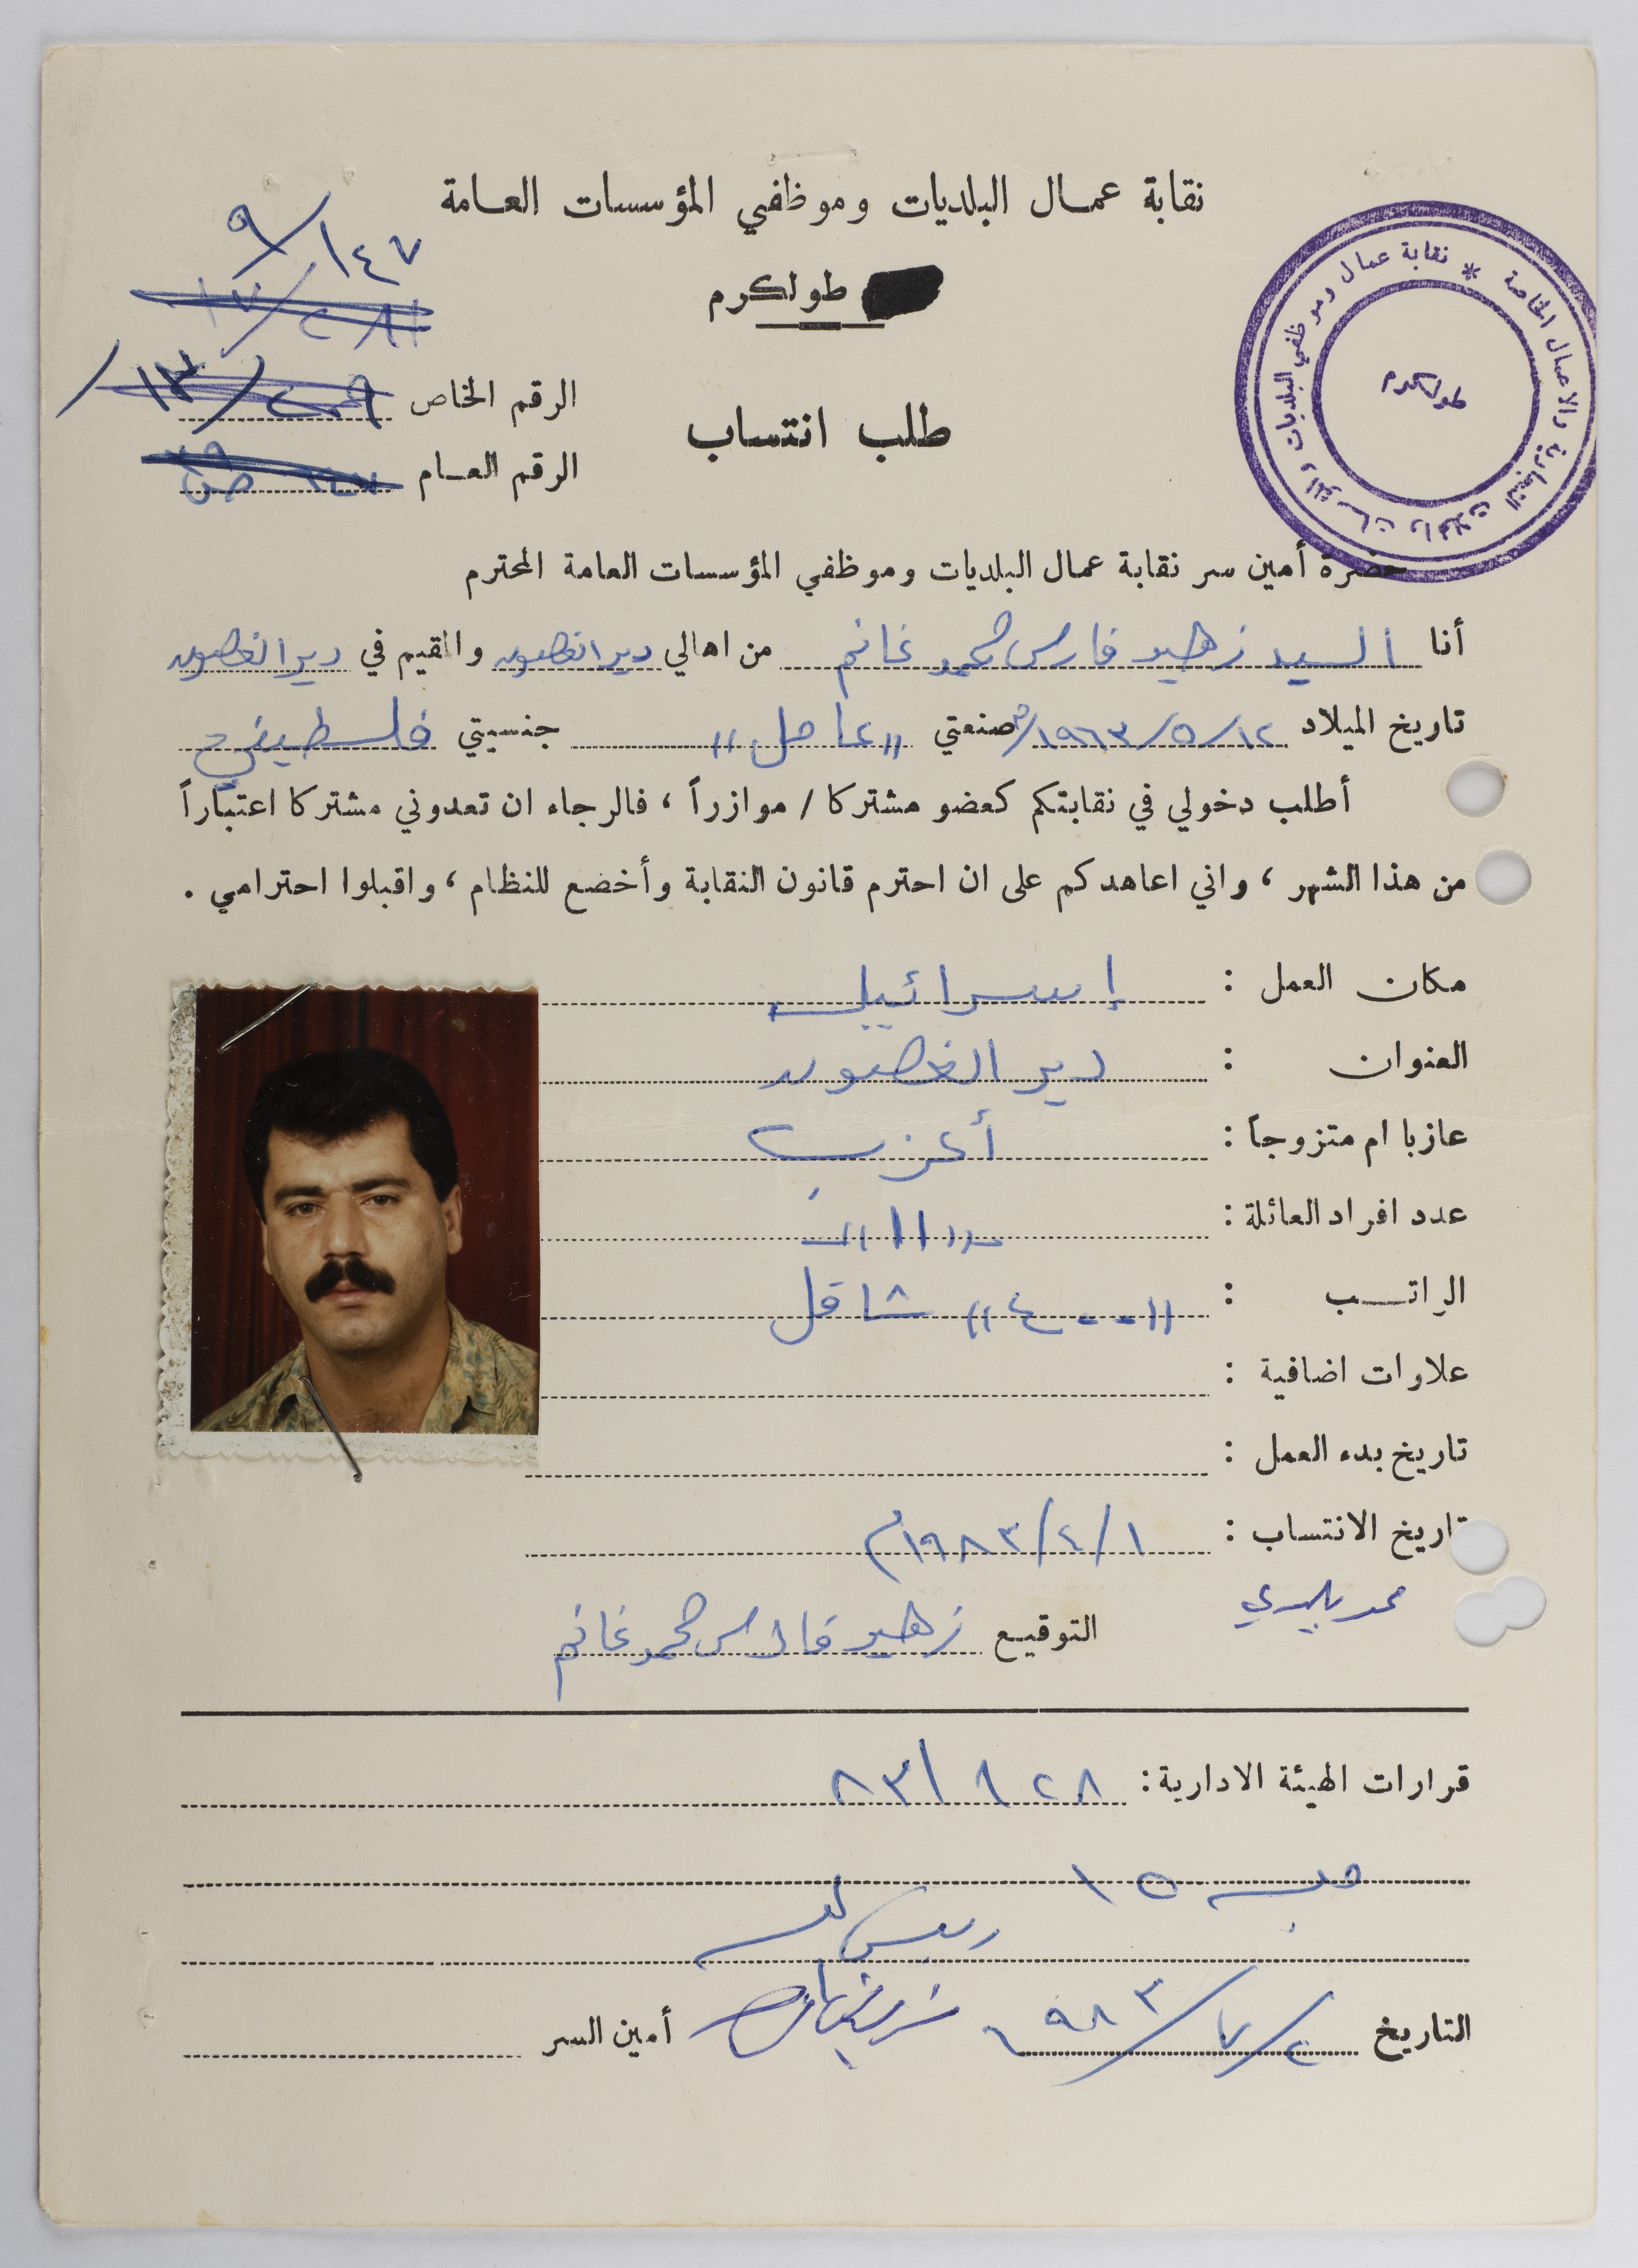 نقابة عمال البلديات وموظفي المؤسسات العامة
طولكرم
٩/١٤٧
الرقم الخاص
الرقم العام
طلب انتساب
نقابة عمال وموظفي البلديات والمؤسسات والمحلات التجارية والاعمال الخاصة *
طولكرم
حضرة أمين سر نقابة عمال البلديات وموظفي المؤسسات العامة المحترم
أنا السيد زهير فارس محمد غانم من اهالي دير الغصون والمقيم في دير الغصون
تاريخ الميلاد ١٢/٥/١٩٦٣م صنعتي "عامل" جنسيتي فلسطيني
أطلب دخولي في نقابتكم كعضو مشتركا / موازراً ، فالرجاء ان تعدوني مشتركا اعتباراً
من هذا الشهر ، واني اعاهدكم على ان احترم قانون النقابة وأخضع للنظام ، واقبلوا احترامي .
مكان العمل : إسرائيل
العنوان : دير الغصون
عازبا ام متزوجاً : أعزب
عدد افراد العائلة : "١١"
الراتب : "٤٠٠" شاقل
علاوات اضافية :
تاريخ بدء العمل :
تاريخ الانتساب : ١/٤/١٩٨٣م
التوقيع زهير فارس محمد غانم
قرارات الهيئة الادارية :
التاريخ ٢/٧/١٩٨٣ أمين السر